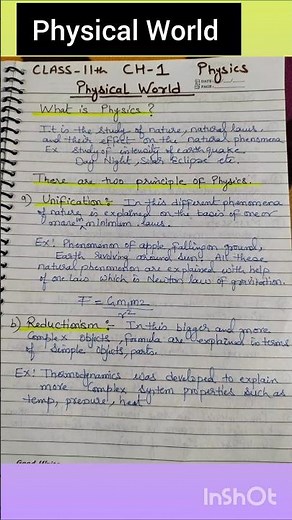 Physical World
CLASS-11th CH-1 Physics
DATE
PAGE
Physical World
What is Physics ?
It is the study of nature, natural laws
and their effect on the natural phenomena
Ex study of intensity of earthquake
Day Night, Solar Eclipse etc.
There are two principle of Physics.
a) Unification :- In this different phenomena
of nature is explained on the basis of one or
more in minimum laws.
Ex: Phenomenon of apple falling on ground,
Earth revolving around sun. All these
natural phenomenon are explained with help
of one law which is Newton law of gravitation.
F = Gm1m2
r2
b) Reductionism :- In this bigger and more
complex objects, formula are explained in terms
of simple objects, parts.
Ex: Thermodynamics was developed to explain
more complex system properties such as
temp, pressure, heat
InShOt